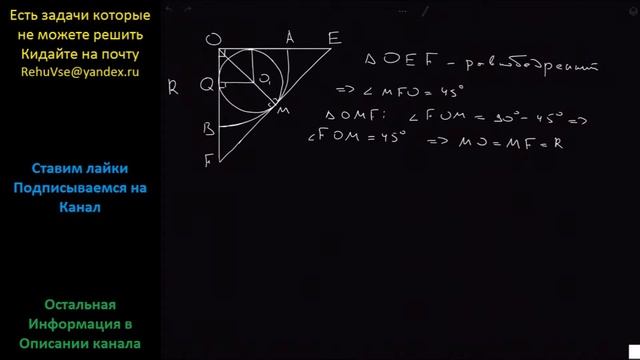 Есть задачи которые
не можете решить
Кидайте на почту
RehuVse@yandex.ru
Ставим лайки
Подписываемся на
Канал
Остальная
Информация в
Описании канала
O A E
Q O₁
R
M
B
F
△OEF – равнобедренный
=> ∠MFO = 45°
△OMF: ∠FOM = 90° – 45° =>
∠FOM = 45° => MO = MF = R